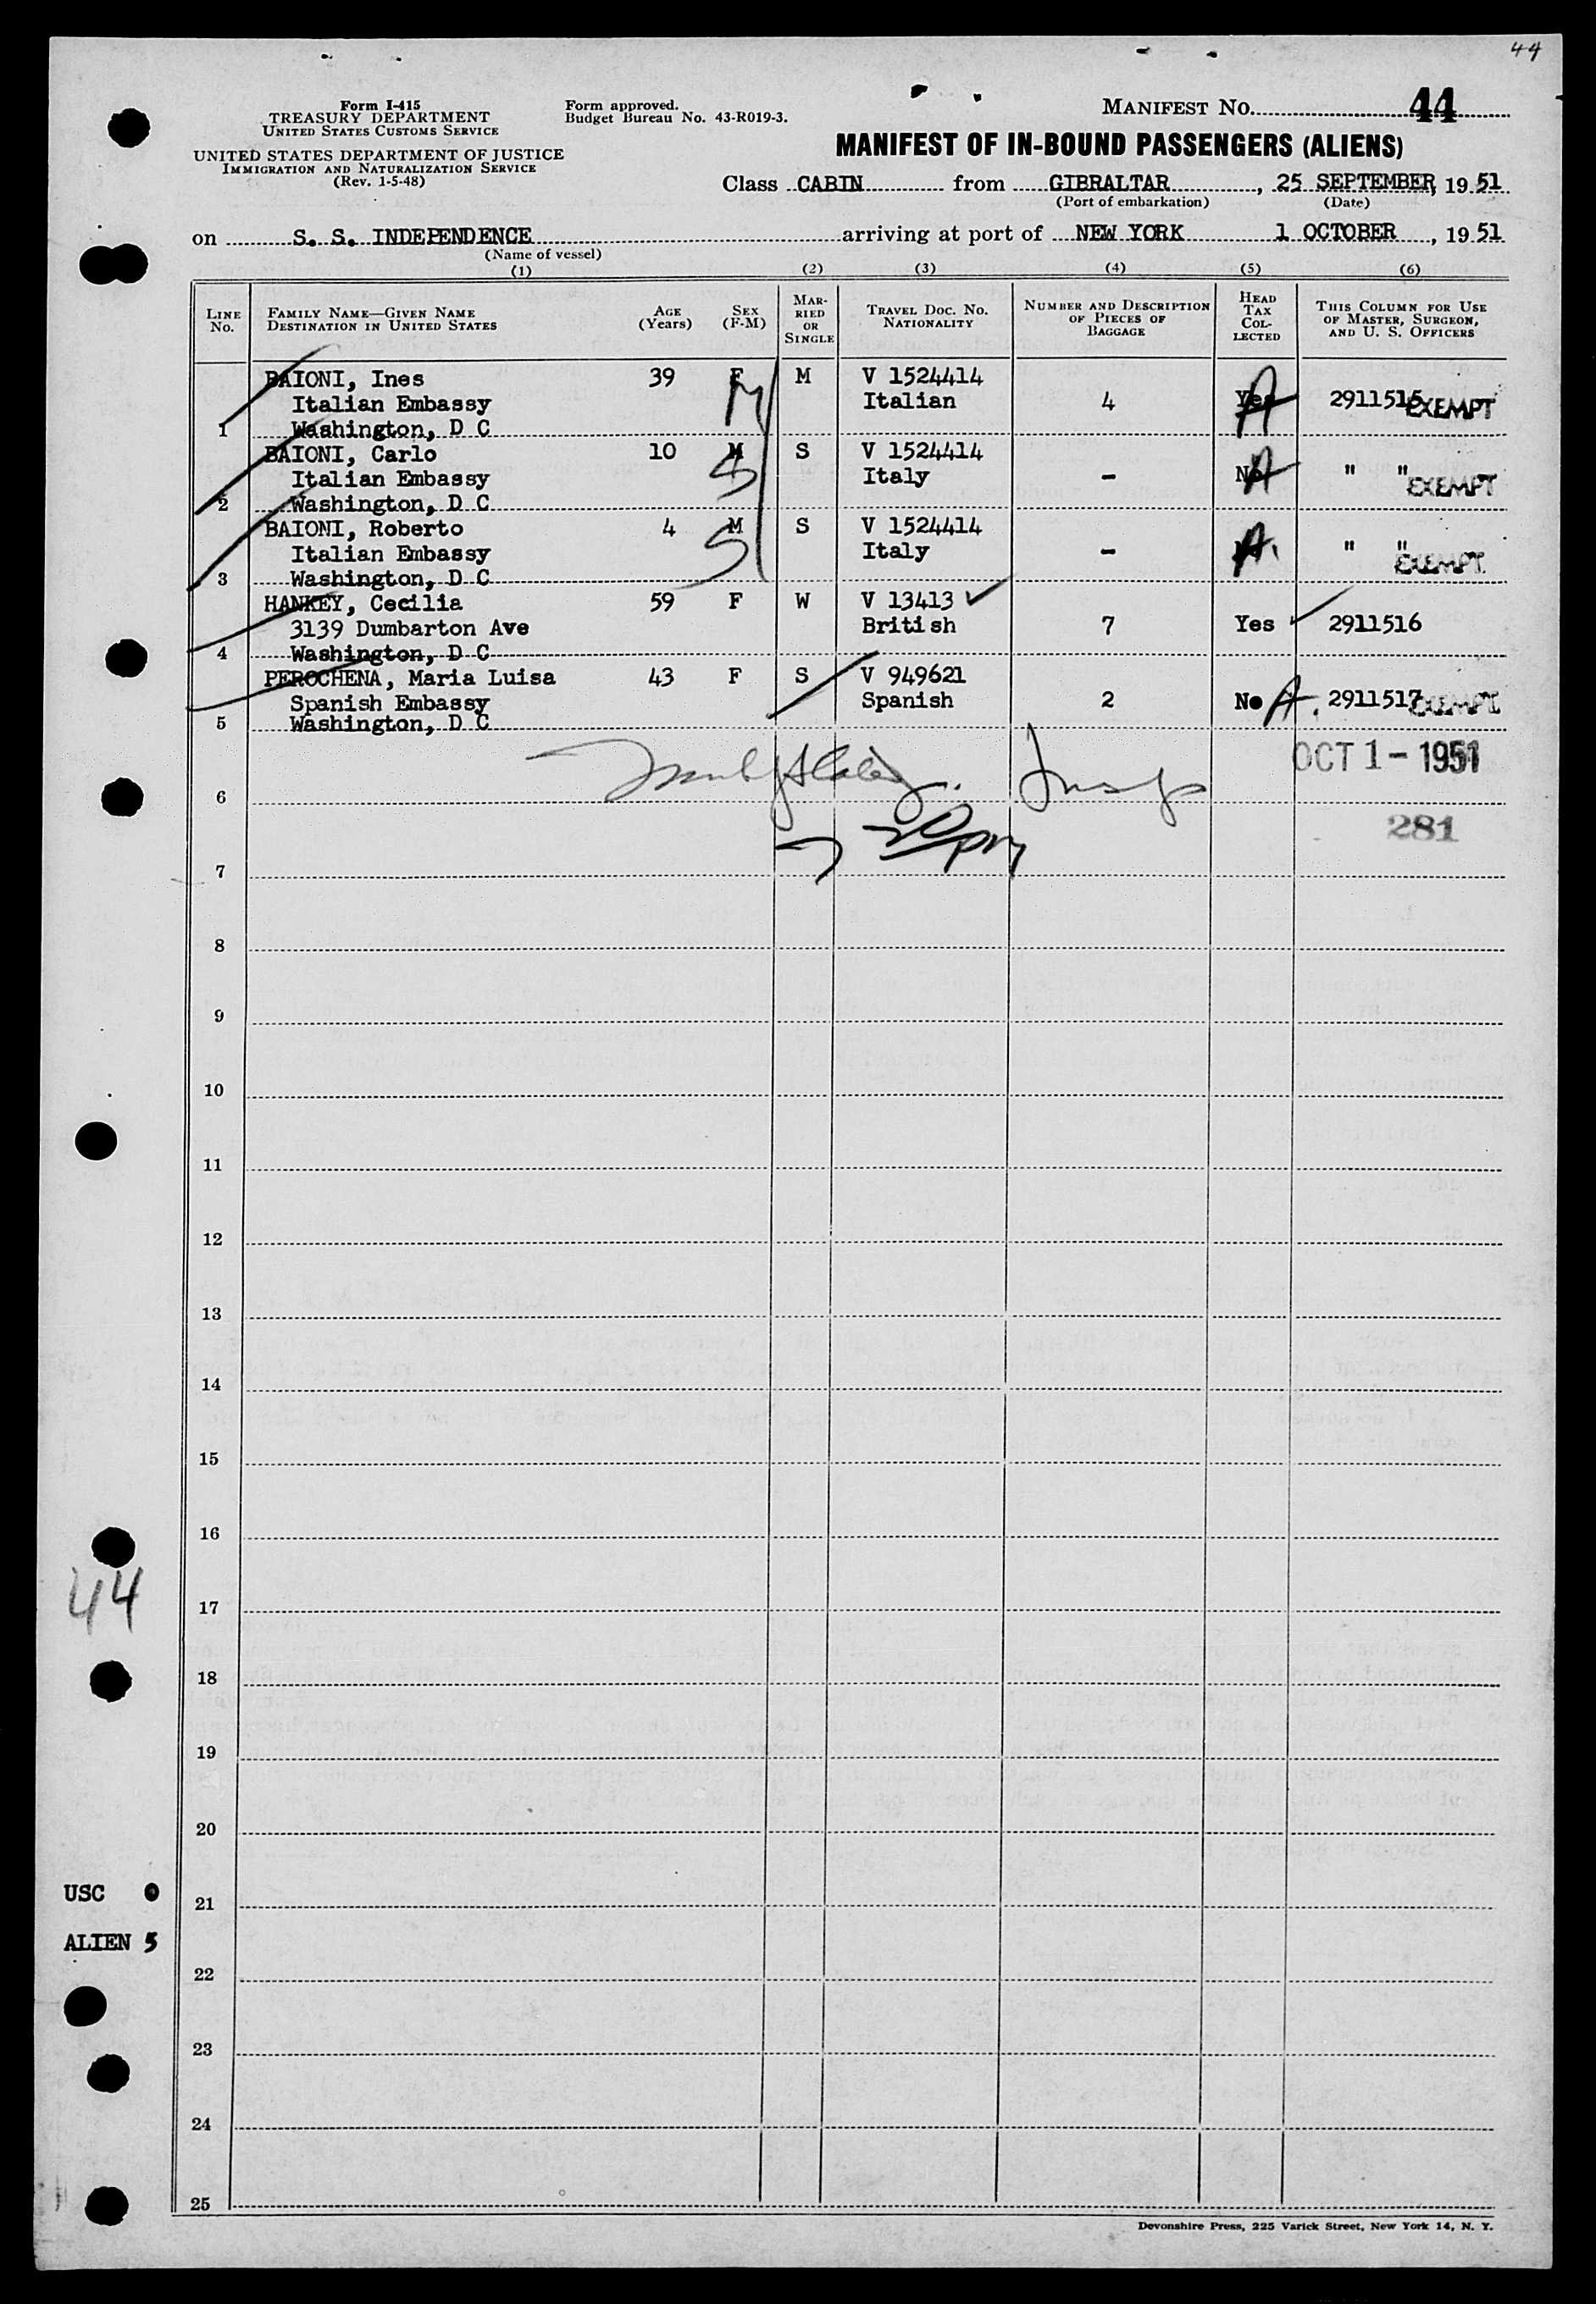 44
Form I-415
TREASURY DEPARTMENT
UNITED STATES CUSTOMS SERVICE
UNITED STATES DEPARTMENT OF JUSTICE
IMMIGRATION AND NATURALIZATION SERVICE
(Rev. 1-5-48)
Form approved.
Budget Bureau No. 43-R019-3.
MANIFEST No. 44
MANIFEST OF IN-BOUND PASSENGERS (ALIENS)
Class CABIN from GIBRALTAR, 25 SEPTEMBER, 1951
(Port of embarkation) (Date)
on S. S. INDEPENDENCE arriving at port of NEW YORK 1 OCTOBER, 1951
(Name of vessel)
(1) (2) (3) (4) (5) (6)
LINE No.
FAMILY NAME—GIVEN NAME
DESTINATION IN UNITED STATES
AGE (Years)
SEX (F-M)
MARRIED OR SINGLE
TRAVEL DOC. NO.
NATIONALITY
NUMBER AND DESCRIPTION
OF PIECES OF
BAGGAGE
HEAD
TAX
COL-
LECTED
THIS COLUMN FOR USE
OF MASTER, SURGEON,
AND U. S. OFFICERS
BAIONI, Ines 39 F M V 1524414
Italian Embassy M Italian 4 Yes A 2911515 EXEMPT
1 Washington, D C
BAIONI, Carlo 10 M S V 1524414
Italian Embassy S Italy - No A " " EXEMPT
2 Washington, D C
BAIONI, Roberto 4 M S V 1524414
Italian Embassy S Italy - A. " " EXEMPT
3 Washington, D C
HANKEY, Cecilia 59 F W V 13413 ✓
3139 Dumbarton Ave British 7 Yes ✓ 2911516
4 Washington, D C
PEROCHENA, Maria Luisa 43 F S V 949621
Spanish Embassy Spanish 2 No A. 2911517 EXEMPT
5 Washington, D C
OCT 1 - 1951
6
281
7
8
9
10
11
12
13
14
15
16
44
17
18
19
20
USC 0
21
ALIEN 5
22
23
24
25
Devonshire Press, 225 Varick Street, New York 14, N. Y.